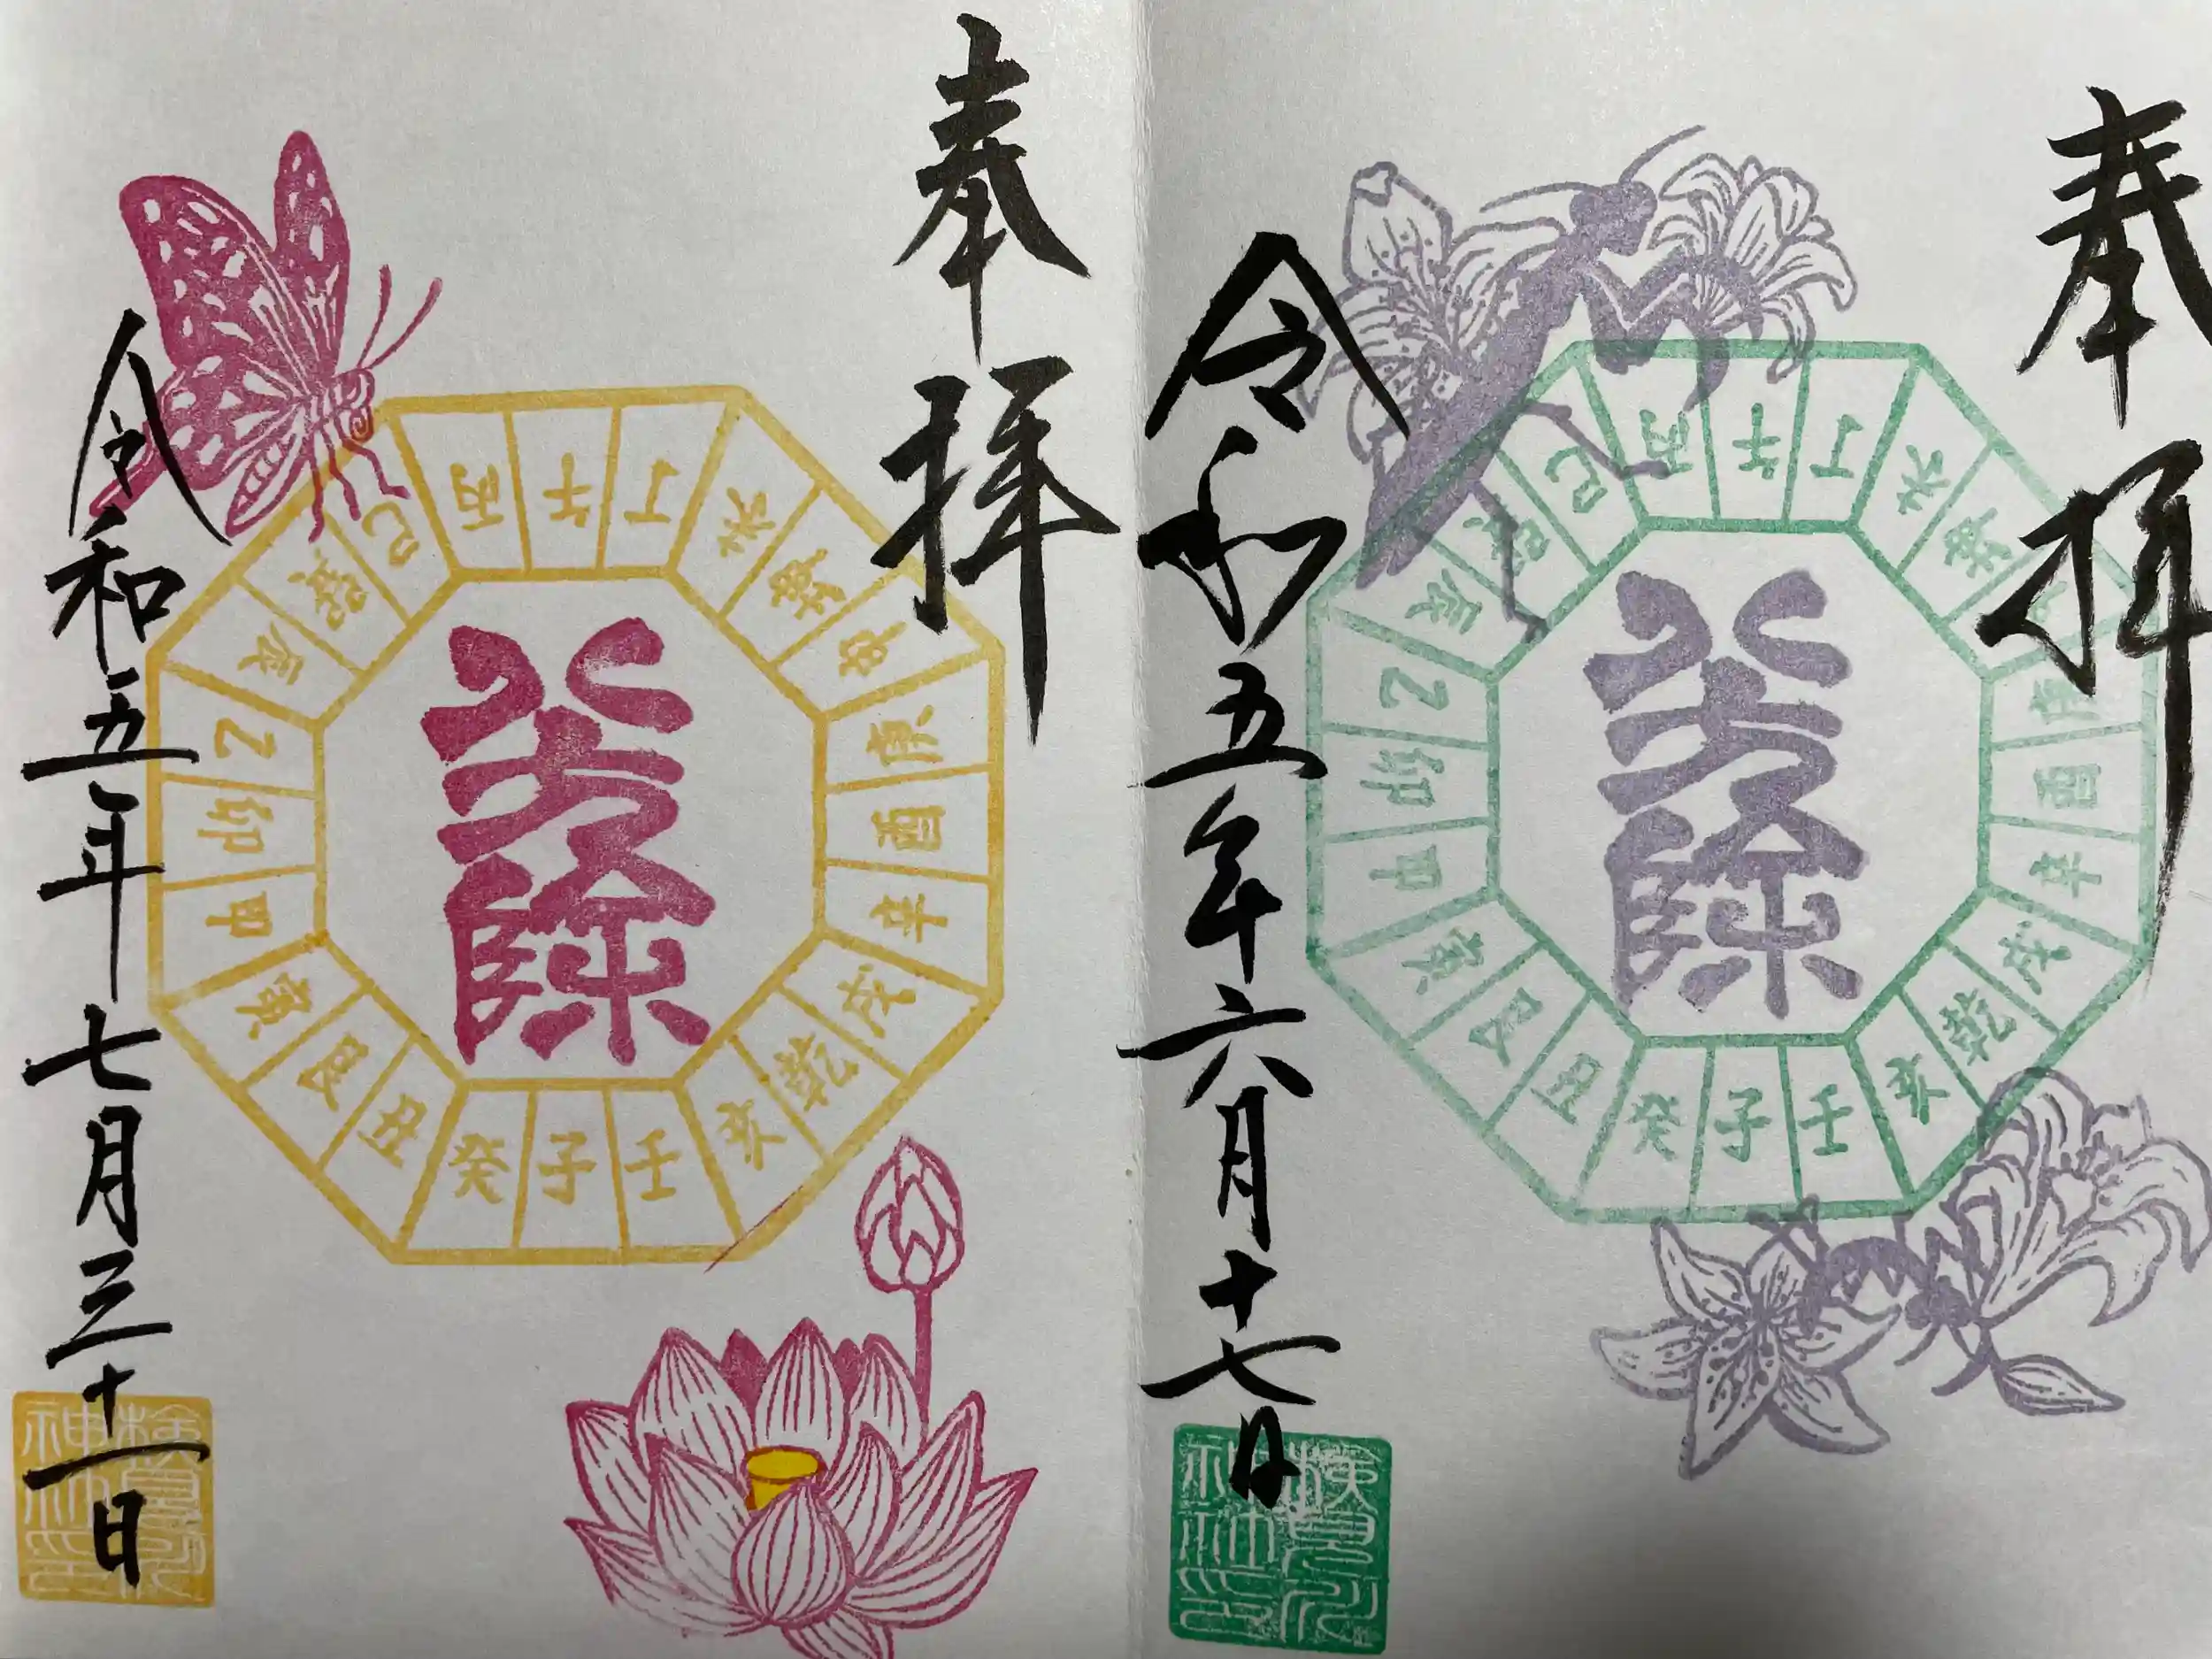 奉拝
丙午丁未坤申庚酉辛戌乾亥壬子癸丑艮寅甲卯乙辰巽巳
八方除
令和五年六月十七日
検見川
神社印
奉拝
丙午丁未坤申庚酉辛戌乾亥壬子癸丑艮寅甲卯乙辰巽巳
八方除
令和五年七月三十一日
検見川
神社印